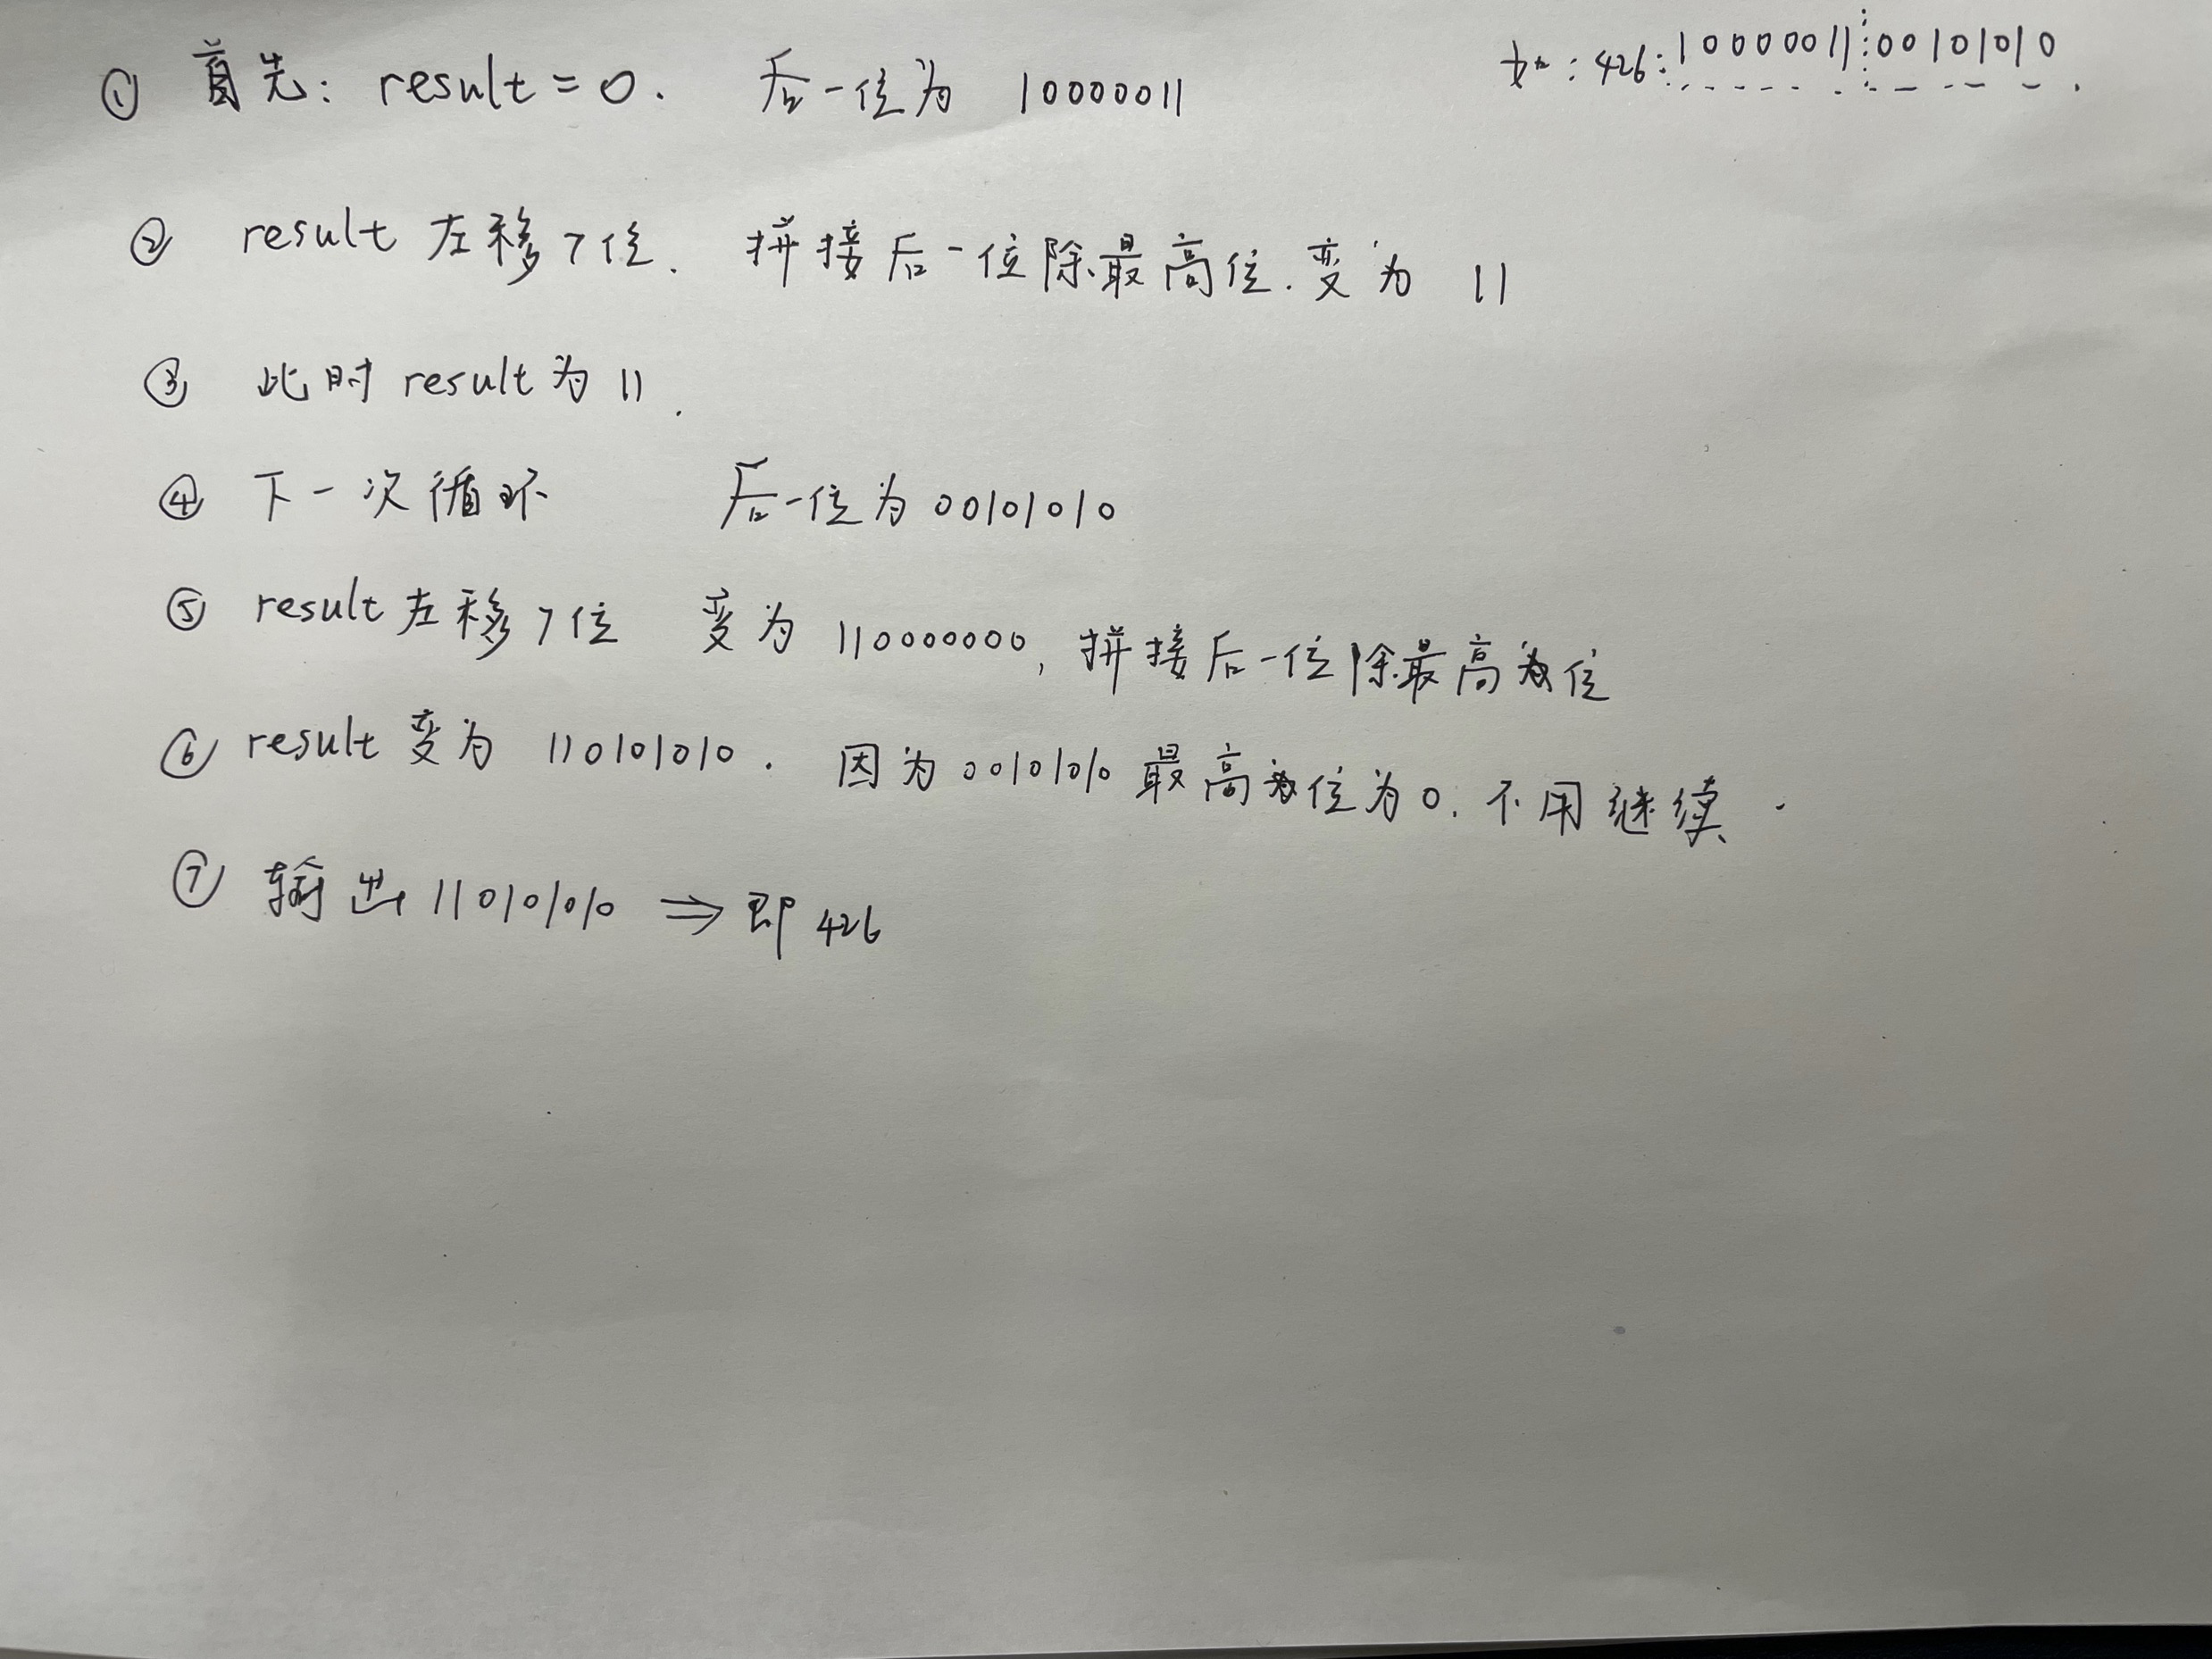 如：426：10000011 00101010.
① 首先：result = 0. 后一位为 10000011
② result 左移7位. 拼接后一位除最高位.变为 11
③ 此时 result 为 11.
④ 下一次循环 后一位为 00101010
⑤ result 左移7位 变为 110000000, 拼接后一位除最高位
⑥ result 变为 110101010. 因为 00101010 最高位为0. 不用继续.
⑦ 输出 110101010 ⇒ 即 426